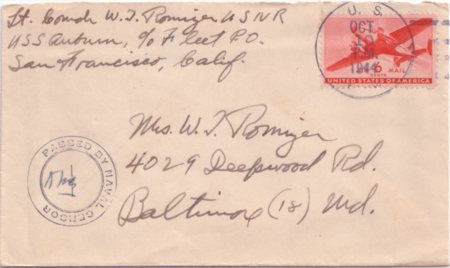 Lt. Comdr W. T. Romizer USNR
USS Auburn, c/o Fleet P.O.
San Francisco, Calif.
U. S.
OCT
1944
6
CENTS
AIR MAIL
UNITED STATES OF AMERICA
Mrs. W. T. Romizer
4029 Deepwood Rd.
Baltimore (18) Md.
PASSED BY NAVAL CENSOR